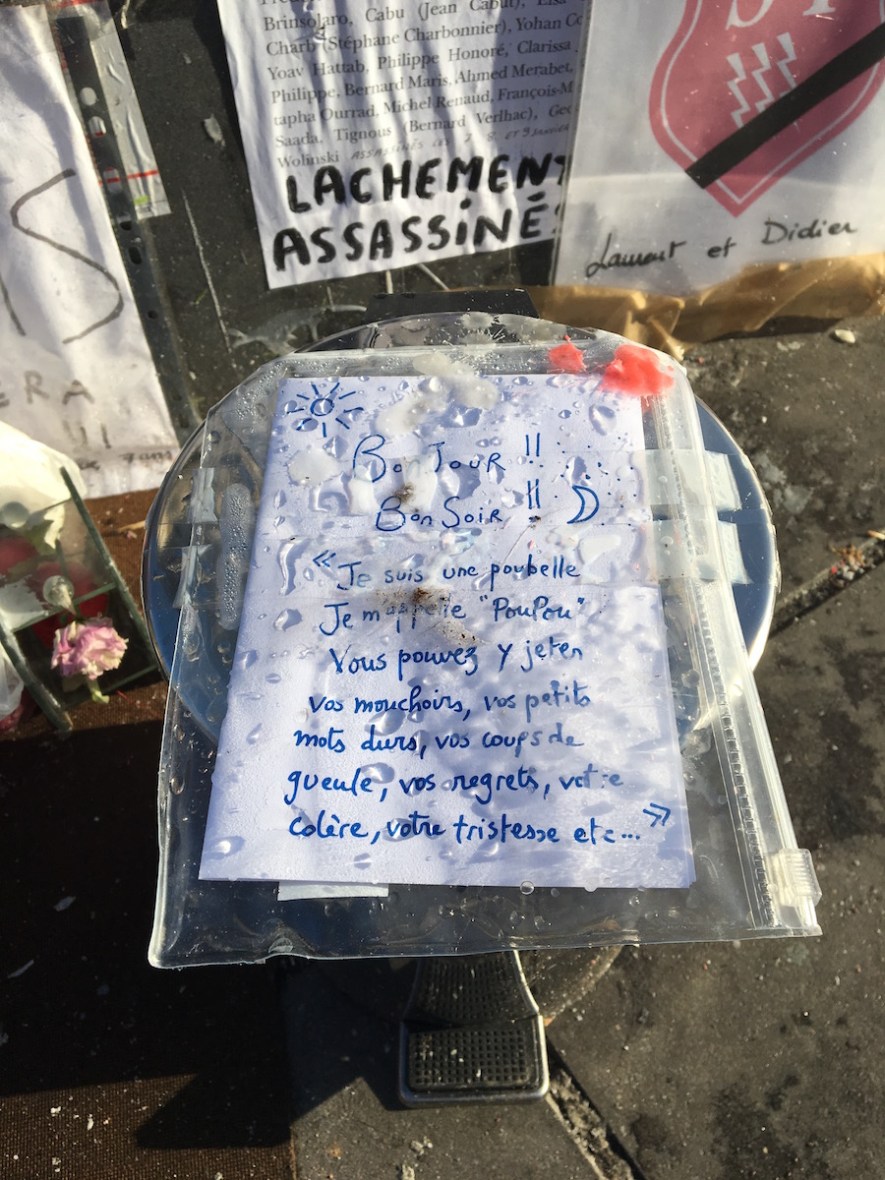 Brinsolaro, Cabu (Jean Cabut), Elsa
Charb (Stéphane Charbonnier), Yohan Co
Yoav Hattab, Philippe Honoré, Clarissa
Philippe, Bernard Maris, Ahmed Merabet,
tapha Ourrad, Michel Renaud, François-M
Saada, Tignous (Bernard Verlhac), Geo
Wolinski ASSASSINÉS LES 7, 8, ET 9 Janvier
LACHEMENT
ASSASSINÉS
Laurent et Didier
S
ERA
UI
BonJour !!
BonSoir !!
« Je suis une poubelle
Je m'appelle "PouPou"
Vous pouvez y jeter
vos mouchoirs, vos petits
mots durs, vos coups de
gueule, vos regrets, votre
colère, votre tristesse etc... »